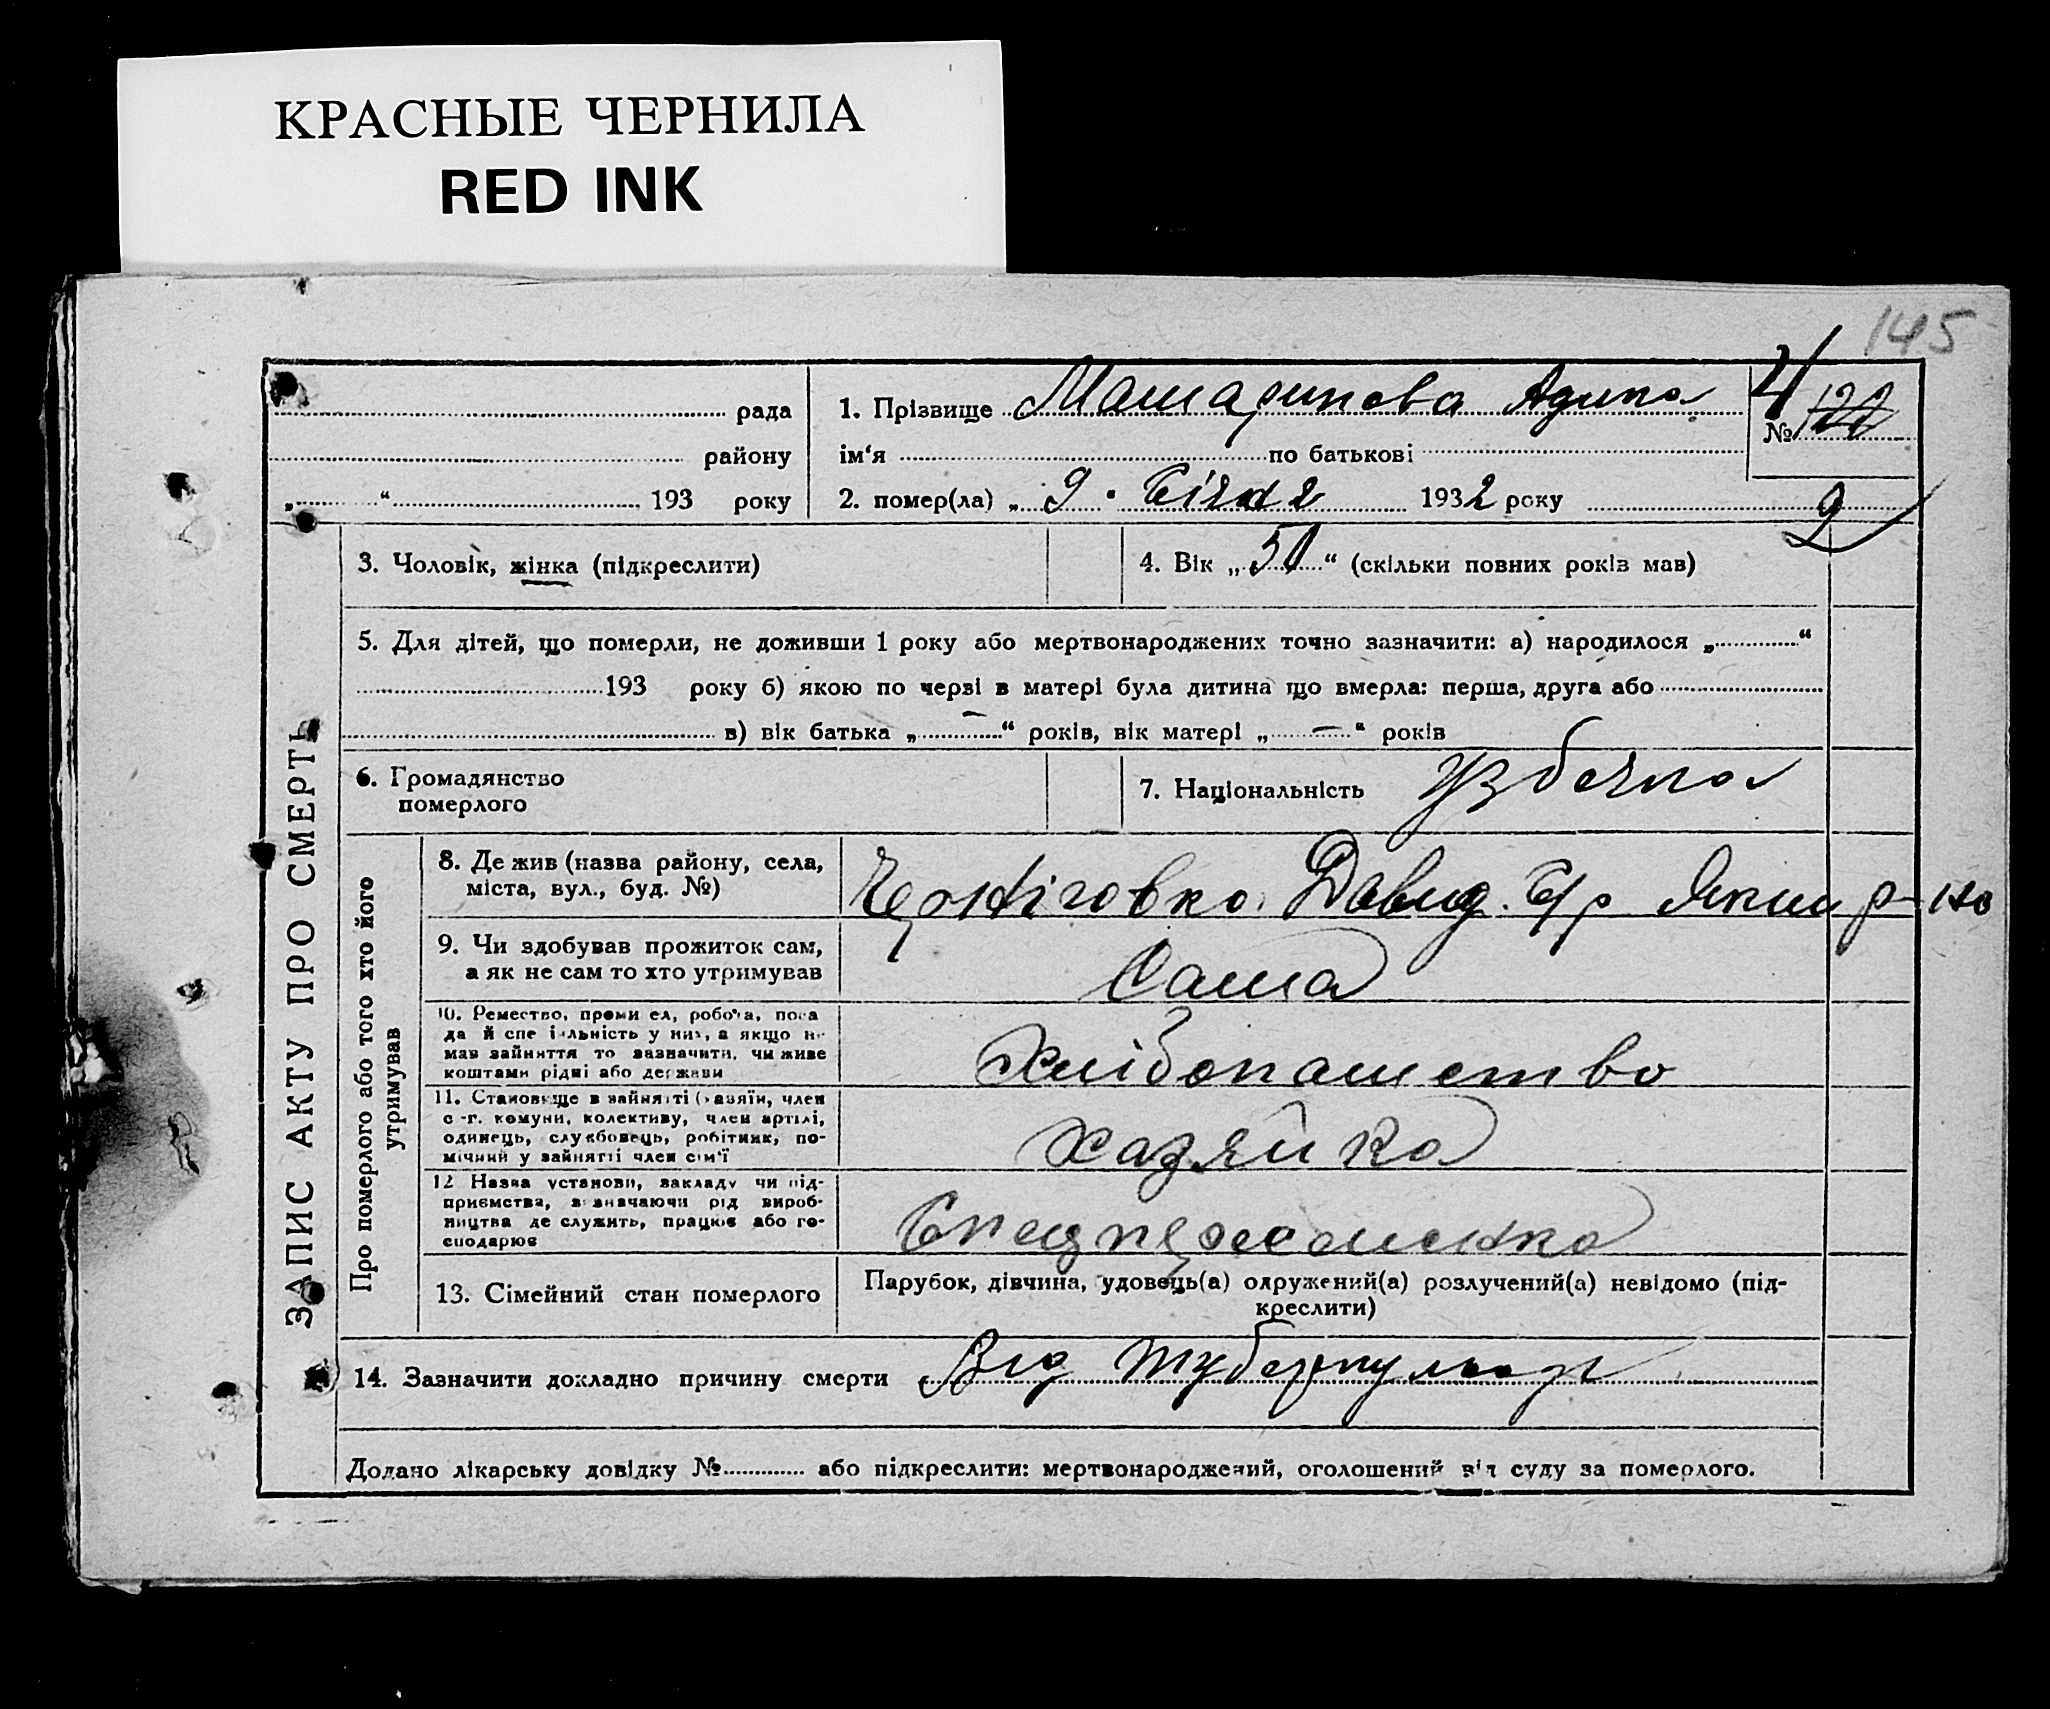 КРАСНЫЕ ЧЕРНИЛА
RED INK
145
рада
району
„ “ 193 року
1. Прізвище Машарипова Адипа
№ 4/ 122
ім‘я по батькові
2. помер(ла) „ 9 . Січня 1932 року
9
3. Чоловік, жінка (підкреслити)
4. Вік „ 50 “ (скільки повних років мав)
5. Для дітей, що померли, не доживши 1 року або мертвонароджених точно зазначити: а) народилося „ “
193 року б) якою по черзі в матері була дитина що вмерла: перша, друга або
в) вік батька „ — “ років, вік матері „ — “ років
6. Громадянство
померлого
7. Національність Узбечка
ЗАПИС АКТУ ПРО СМЕРТЬ
Про померлого або того хто його
утримував
8. Де жив (назва району, села,
міста, вул., буд. №)
Черніговка. Давид. С/р Яким р-ну
9. Чи здобував прожиток сам,
а як не сам то хто утримував
Сама
10. Ремество, промисел, робота, поса
да й спеціяльність у них, а якщо не
мав зайняття то зазначити, чи живе
коштами рідні або держави
Хлібопашество
11. Становище в зайнятті (хазяїн, член
с.-г. комуни, колективу, член артілі,
одинець, службовець, робітник, по-
мічний у зайнятті член сім‘ї
хазяйка
12 Назва установи, закладу чи під-
приємства, зазначаючи рід вироб-
ництва де служить, працює або го-
сподарює
Спецпереселенка
13. Сімейний стан померлого
Парубок, дівчина, удовець(а) одружений(а) розлучений(а) невідомо (під-
креслити)
14. Зазначити докладно причину смерти Від туберкульозу
Додано лікарську довідку № або підкреслити: мертвонароджений, оголошений від суду за померлого.